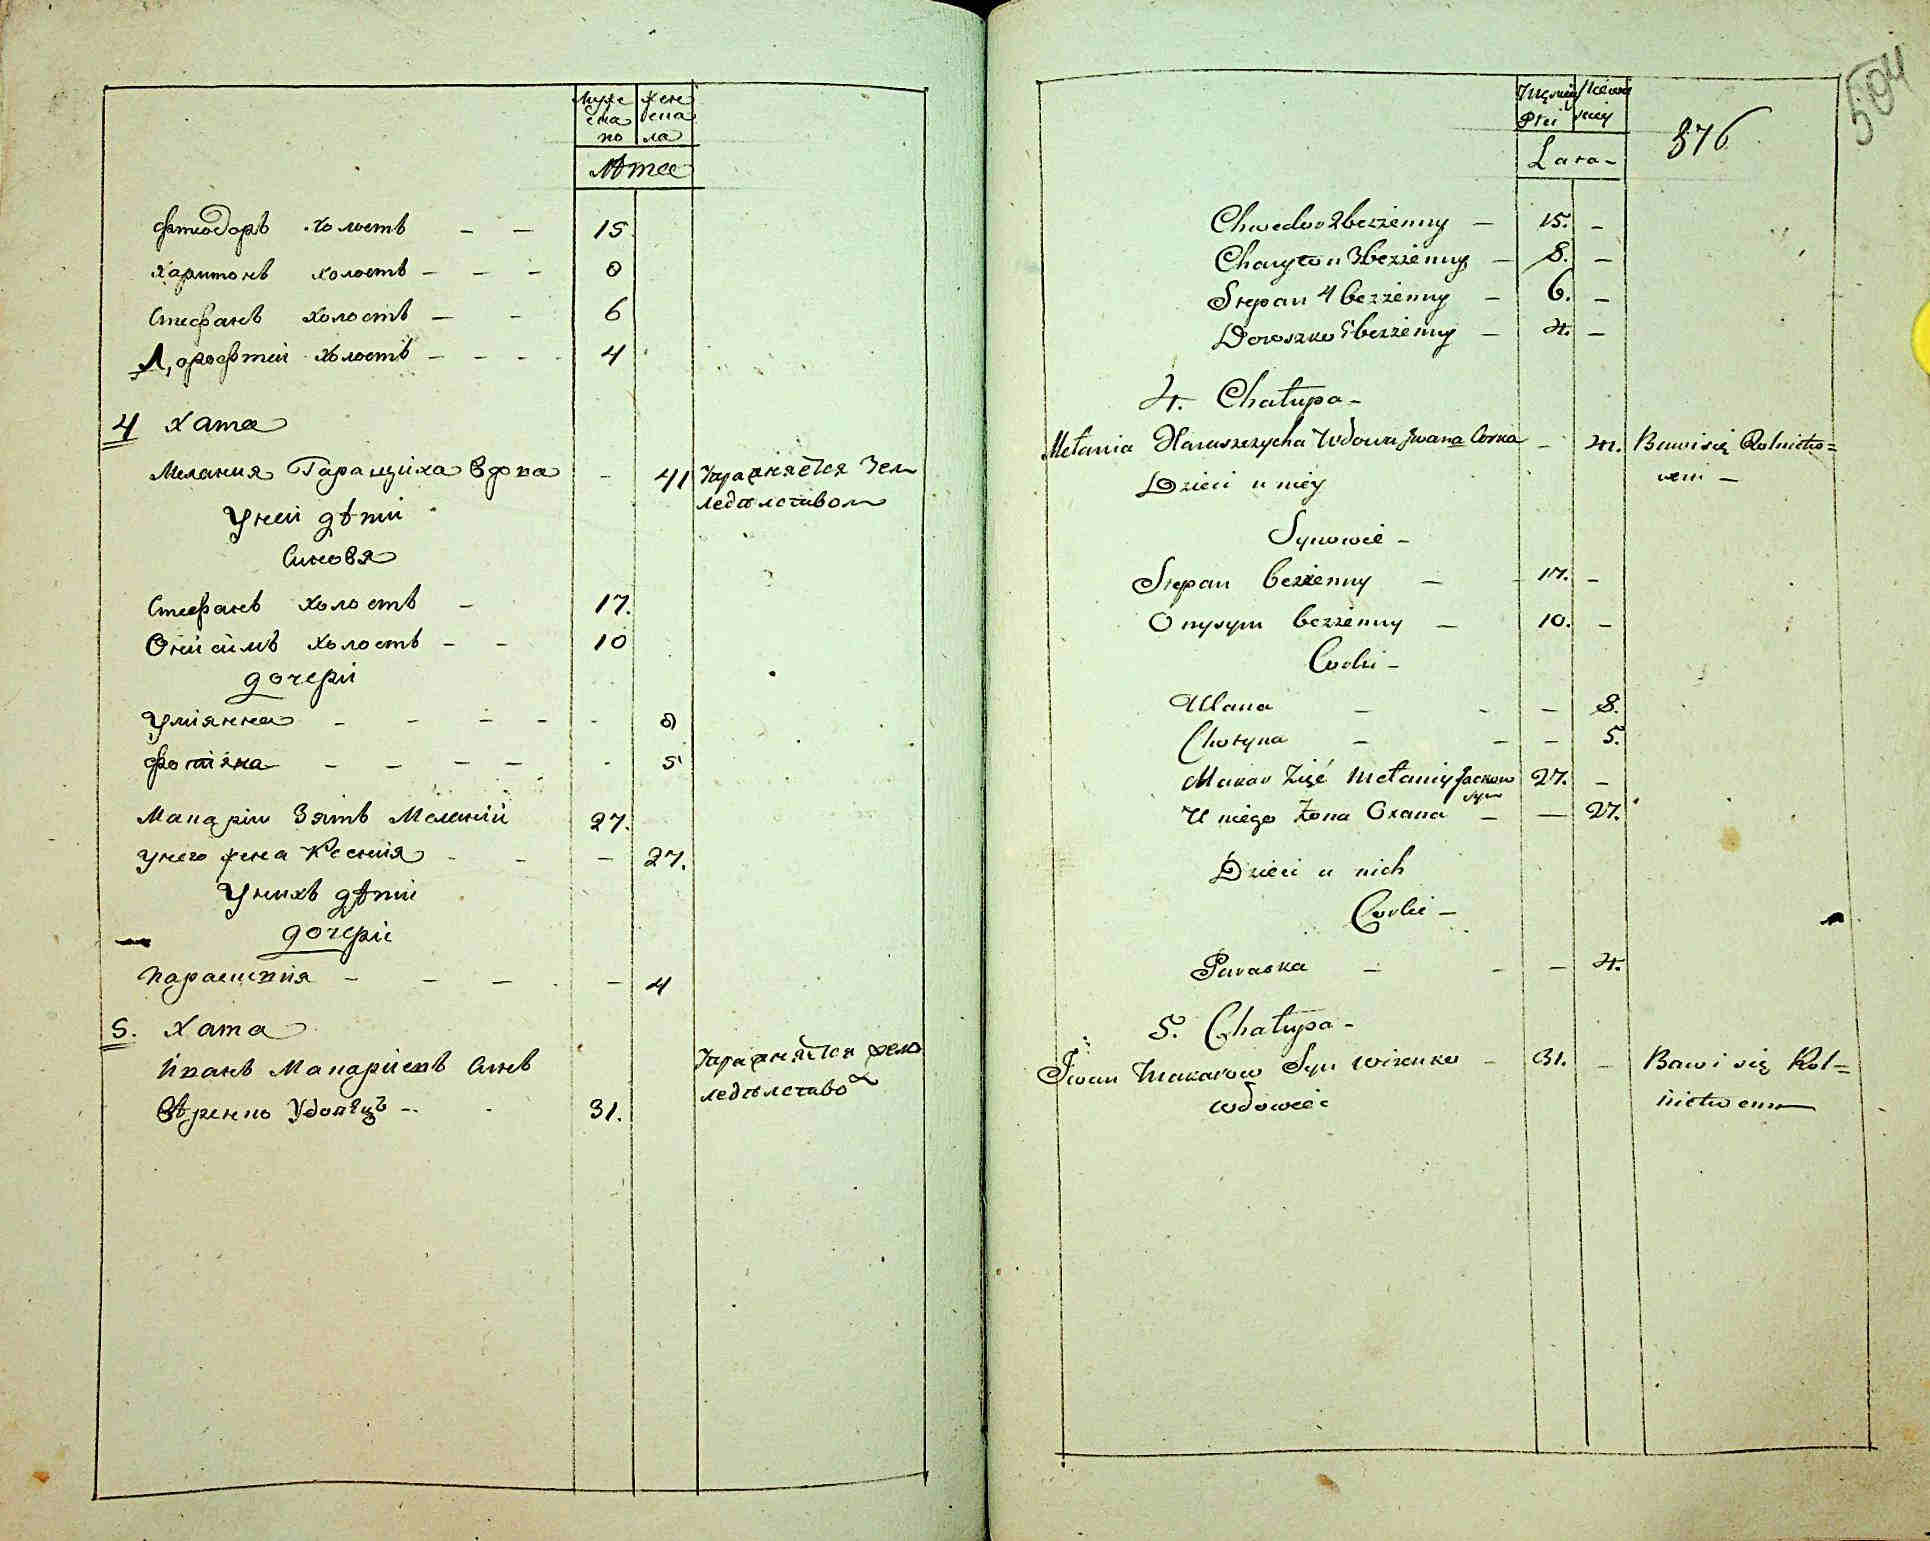 Муже
ска
го
Жен
ска
ла
Лѣта
Фтеодоръ холостъ - - 15
Харитонъ холостъ - - - 8
Стефанъ холостъ - - 6
Дорофтей холостъ - - - - 4
4 Хата
Мелания Гаращиха вдова - 41
Упражняется Зем
ледѣлством
У ней дѣти
Синовя
Стефанъ холостъ - 17.
Онисимъ холостъ - - 10
дочери
Улиянна - - - - - 8
Фотіяна - - - - - 5
Макарій Зять Меланій 27.
У него жена Ксения - - - 27.
У нихъ дѣти
дочери
Параскпия - - - - - 4
5. Хата
Иванъ Макариевъ Синъ
Упражняется земле
ледѣлство
Вѣренко Удовецъ - - 31.
504
Męzkiey
Płci
Żeńskiey
Lata -
376
Chwedor 2 bezżenny - 15. -
Charyton 3 bezżenny - 8. -
Stepan 4 bezżenny - 6. -
Doroszko 5 bezżenny - 4. -
4. Chałupa -
Mełania Haraszczycha Wdowa Jwana Corka - 41. Bawi się Rolnictw=
wem -
Dzieci u niey
Synowie -
Stepan bezżenny - - 17. -
Onysym bezżenny - 10. -
Corki -
Ulana - - - 8.
Chotyna - - - 5.
Makar Zięć Mełaniy Jackow 27. -
syn
U niego Żona Oxana - - 27.
Dzieci u nich
Corki -
Paraska - - - 4.
5. Chałupa -
Jwan Makarow Syn Wirenko - 31. - Bawi się Rol=
wdowiec
nictwem